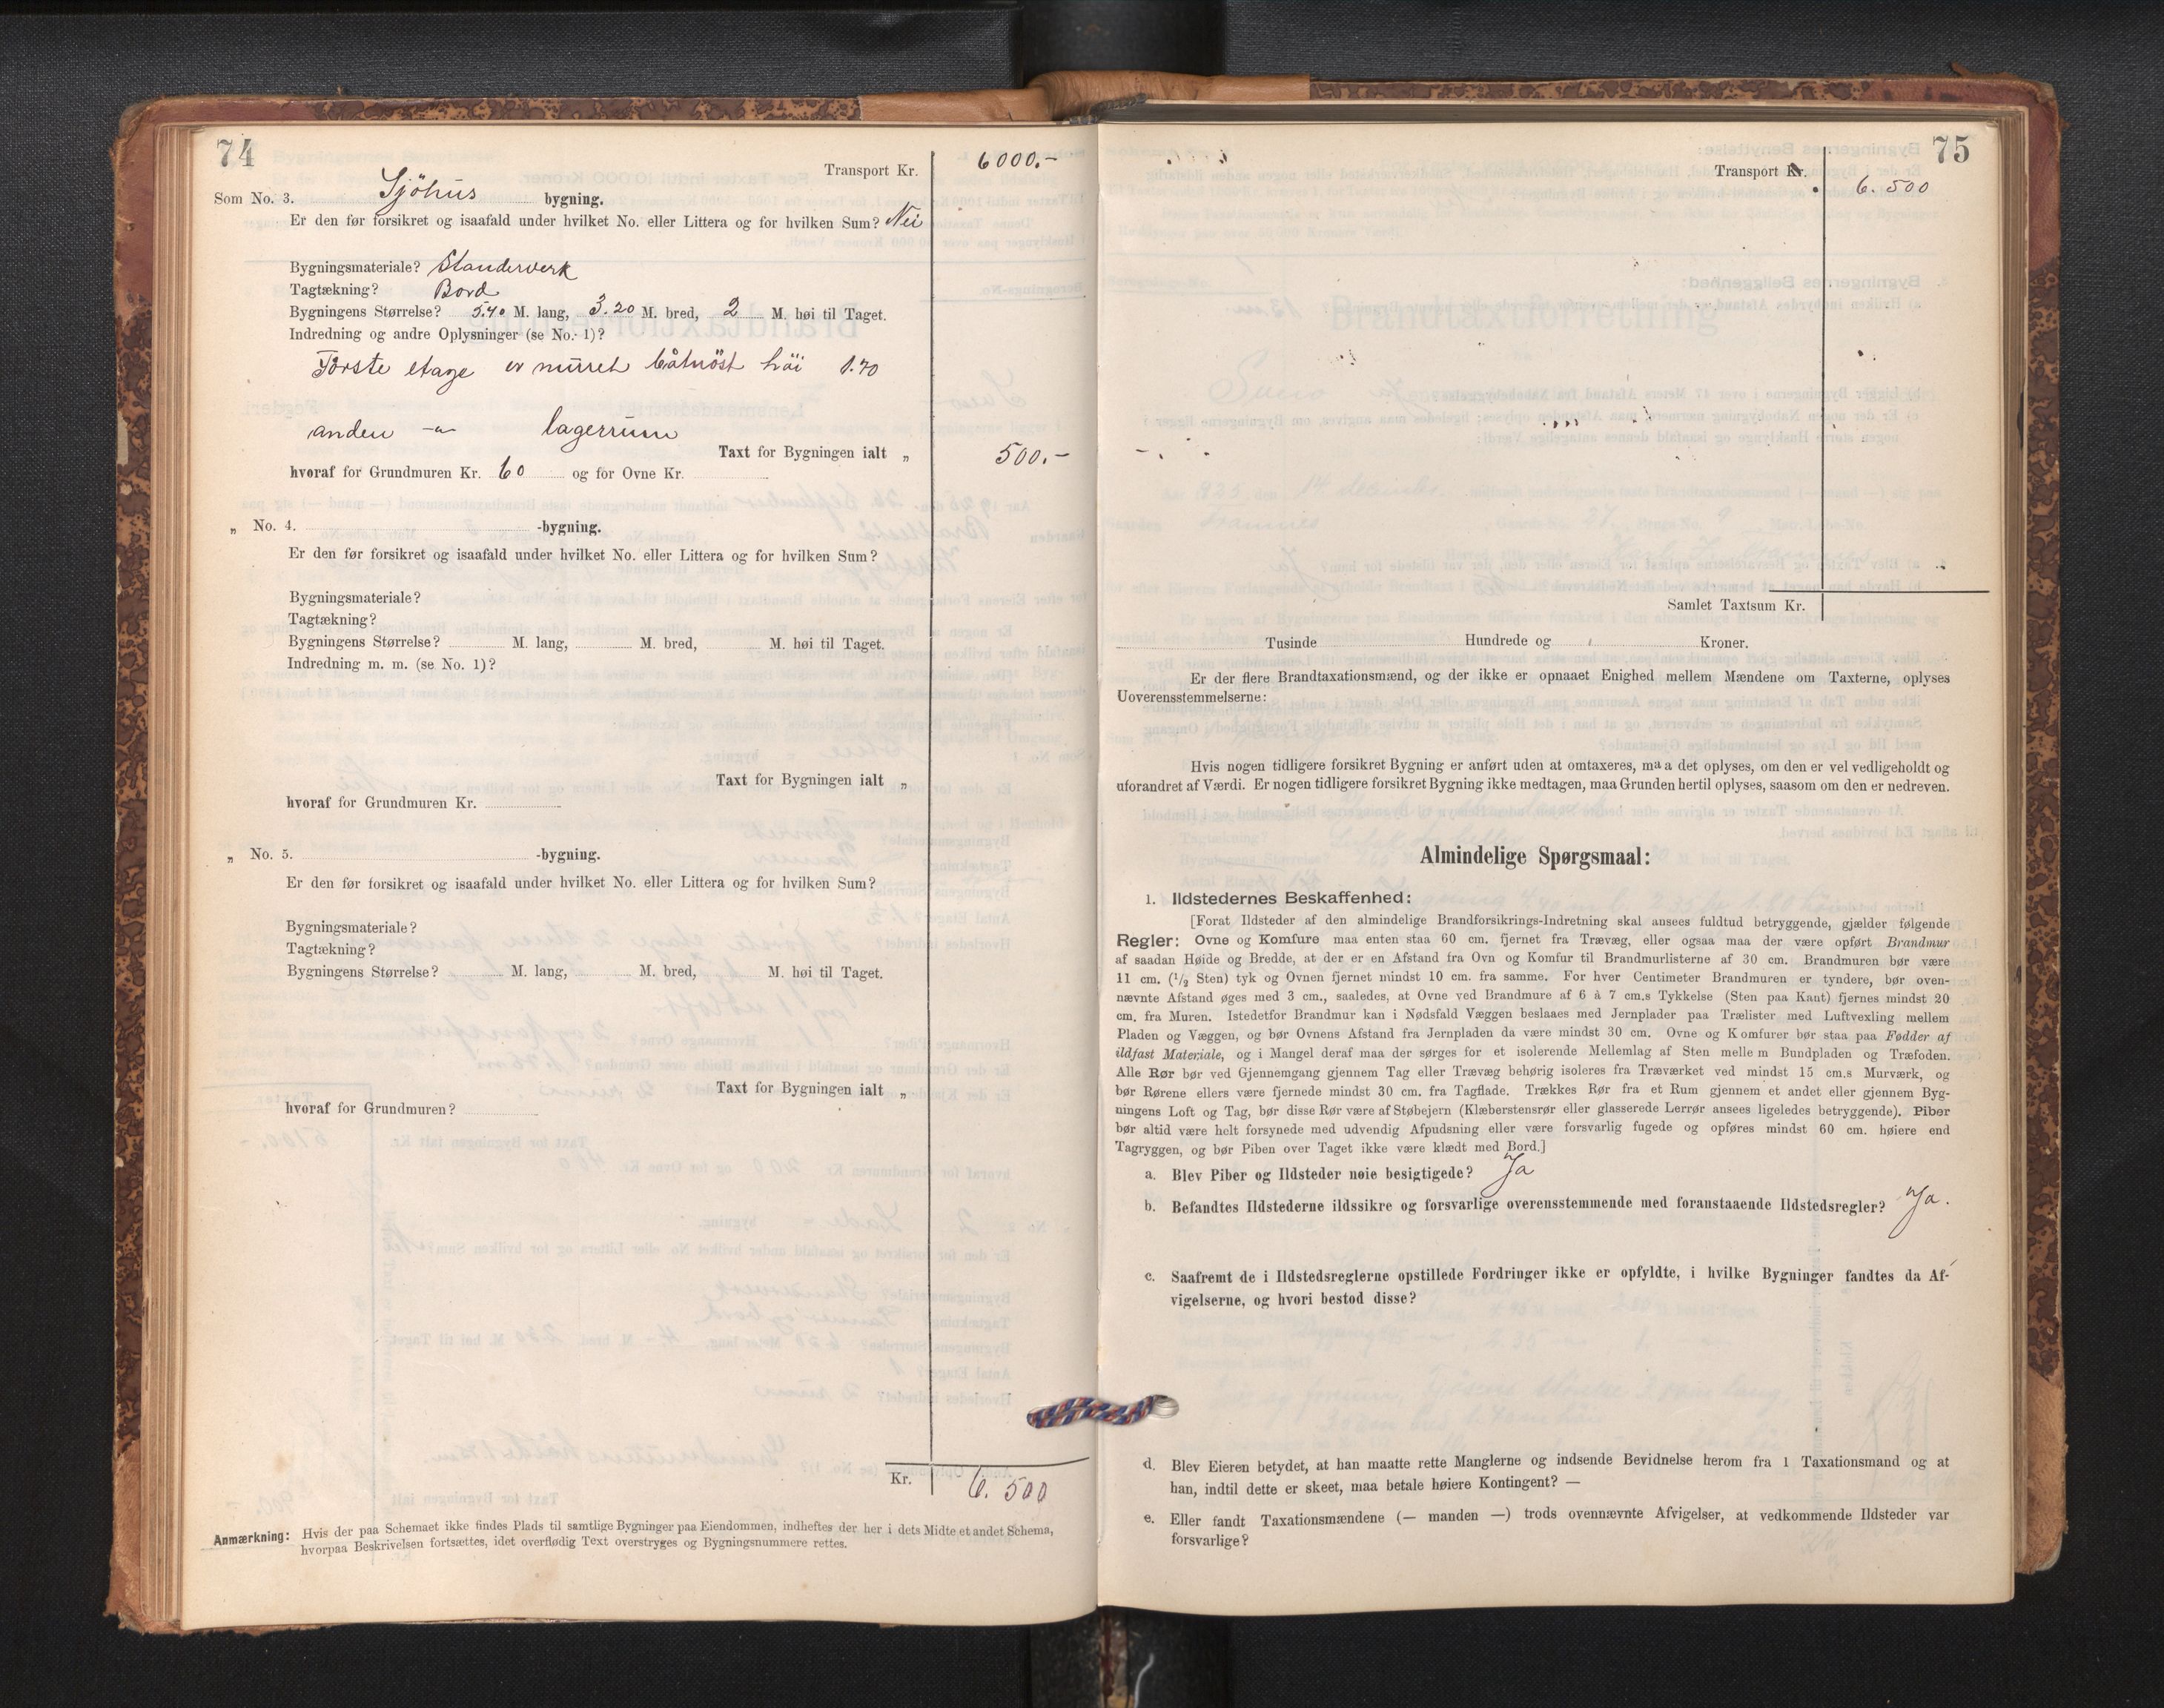 74
Transport Kr. 6000.-
Som No. 3. Sjöhus bygning.
Er den før forsikret og isaafald under hvilket No. eller Littera og for hvilken Sum? Nei
Bygningsmateriale? Standerverk
Tagtækning? Bord
Bygningens Størrelse? 5.40 M. lang, 3.20 M. bred, 2 M. høi til Taget.
Indredning og andre Oplysninger (se No. 1)?
Förste etage er muret båtnöst höi 1.70
anden -"- lagerrum
Taxt for Bygningen ialt „ 500.-
hvoraf for Grundmuren Kr. 60 og for Ovne Kr.
„ No. 4. -bygning.
Er den før forsikret og isaafald under hvilket No. eller Littera og for hvilken Sum?
Bygningsmateriale?
Tagtækning?
Bygningens Størrelse? M. lang, M. bred, M. høi til Taget.
Indredning m. m. (se No. 1)?
Taxt for Bygningen ialt „
hvoraf for Grundmuren Kr.
„ No. 5. -bygning.
Er den før forsikret og isaafald under hvilket No. eller Littera og for hvilken Sum?
Bygningsmateriale?
Tagtækning?
Bygningens Størrelse? M. lang, M. bred, M. høi til Taget.
Taxt for Bygningen ialt „
hvoraf for Grundmuren?
Kr. 6.500
Anmærkning: Hvis der paa Schemaet ikke findes Plads til samtlige Bygninger paa Eiendommen, indheftes der her i dets Midte et andet Schema,
hvorpaa Beskrivelsen fortsættes, idet overflødig Text overstryges og Bygningsnummere rettes.
75
Transport Kr. 6.500
Samlet Taxtsum Kr.
Tusinde Hundrede og Kroner.
Er der flere Brandtaxationsmænd, og der ikke er opnaaet Enighed mellem Mændene om Taxterne, oplyses
Uoverensstemmelserne:
Hvis nogen tidligere forsikret Bygning er anført uden at omtaxeres, maa det oplyses, om den er vel vedligeholdt og
uforandret af Værdi. Er nogen tidligere forsikret Bygning ikke medtagen, maa Grunden hertil oplyses, saasom om den er nedreven.
Almindelige Spørgsmaal:
1. Ildstedernes Beskaffenhed:
[Forat Ildsteder af den almindelige Brandforsikrings-Indretning skal ansees fuldtud betryggende, gjælder følgende
Regler: Ovne og Komfure maa enten staa 60 cm. fjernet fra Trævæg, eller ogsaa maa der være opført Brandmur
af saadan Høide og Bredde, at der er en Afstand fra Ovn og Komfur til Brandmurlisterne af 30 cm. Brandmuren bør være
11 cm. (1/2 Sten) tyk og Ovnen fjernet mindst 10 cm. fra samme. For hver Centimeter Brandmuren er tyndere, bør oven-
nævnte Afstand øges med 3 cm., saaledes, at Ovne ved Brandmure af 6 à 7 cm.s Tykkelse (Sten paa Kant) fjernes mindst 20
cm. fra Muren. Istedetfor Brandmur kan i Nødsfald Væggen beslaaes med Jernplader paa Trælister med Luftvexling mellem
Pladen og Væggen, og bør Ovnens Afstand fra Jernpladen da være mindst 30 cm. Ovne og Komfurer bør staa paa Fødder af
ildfast Materiale, og i Mangel deraf maa der sørges for et isolerende Mellemlag af Sten mellem Bundpladen og Træfoden.
Alle Rør bør ved Gjennemgang gjennem Tag eller Trævæg behørig isoleres fra Træværket ved mindst 15 cm.s Murværk, og
bør Rørene ellers være fjernede mindst 30 cm. fra Tagflade. Trækkes Rør fra et Rum gjennem et andet eller gjennem Byg-
ningens Loft og Tag, bør disse Rør være af Støbejern (Klæberstensrør eller glasserede Lerrør ansees ligeledes betryggende). Piber
bør altid være helt forsynede med udvendig Afpudsning eller være forsvarlig fugede og opføres mindst 60 cm. høiere end
Tagryggen, og bør Piben over Taget ikke være klædt med Bord.]
a. Blev Piber og Ildsteder nøie besigtigede? Ja
b. Befandtes Ildstederne ildssikre og forsvarlige overensstemmende med foranstaaende Ildstedsregler? Ja.
c. Saafremt de i Ildstedsreglerne opstillede Fordringer ikke er opfyldte, i hvilke Bygninger fandtes da Af-
vigelserne, og hvori bestod disse?
d. Blev Eieren betydet, at han maatte rette Manglerne og indsende Bevidnelse herom fra 1 Taxationsmand og at
han, indtil dette er skeet, maa betale høiere Kontingent? —
e. Eller fandt Taxationsmændene (— manden —) trods ovennævnte Afvigelser, at vedkommende Ildsteder var
forsvarlige?